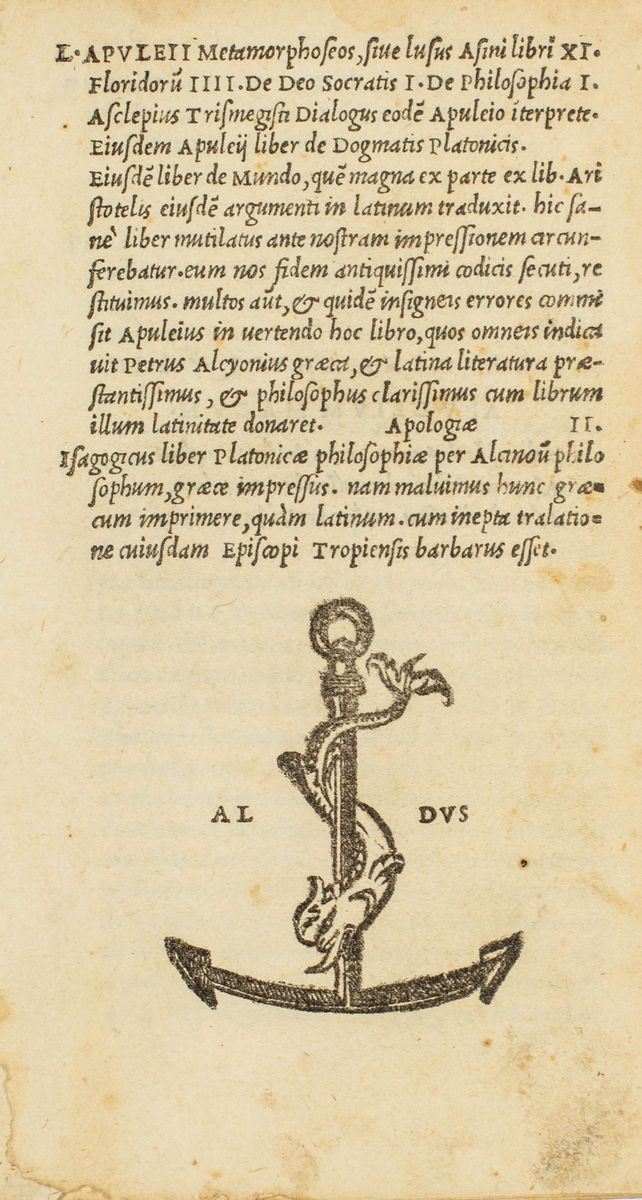 L. APVLEII Metamorphoseos, siue lusus Asini libri XI.
Floridorū IIII. De Deo Socratis I. De Philosophia I.
Asclepius Trismegisti Dialogus eodē Apuleio ĩterprete.
Eiusdem Apuleij liber de Dogmatis Platonicis.
Eiusdē liber de Mundo, quē magna ex parte ex lib. Ari
stotelis eiusdē argumenti in latinum traduxit. hic sa-
nè liber mutilatus ante nostram impressionem circun-
ferebatur. eum nos fidem antiquissimi codicis secuti, re
stituimus. multos aūt, & quidē insigneis errores commi
sit Apuleius in uertendo hoc libro, quos omneis indica
uit Petrus Alcyonius græca, & latina literatura præ-
stantissimus, & philosophus clarissimus cum librum
illum latinitate donaret. Apologiæ II.
Isagogicus liber Platonicæ philosophiæ per Alcinoū philo
sophum, græce impressus. nam maluimus hunc græ-
cum imprimere, quàm latinum. cum inepta tralatio-
ne cuiusdam Episcopi Tropiensis barbarus esset.
AL DVS